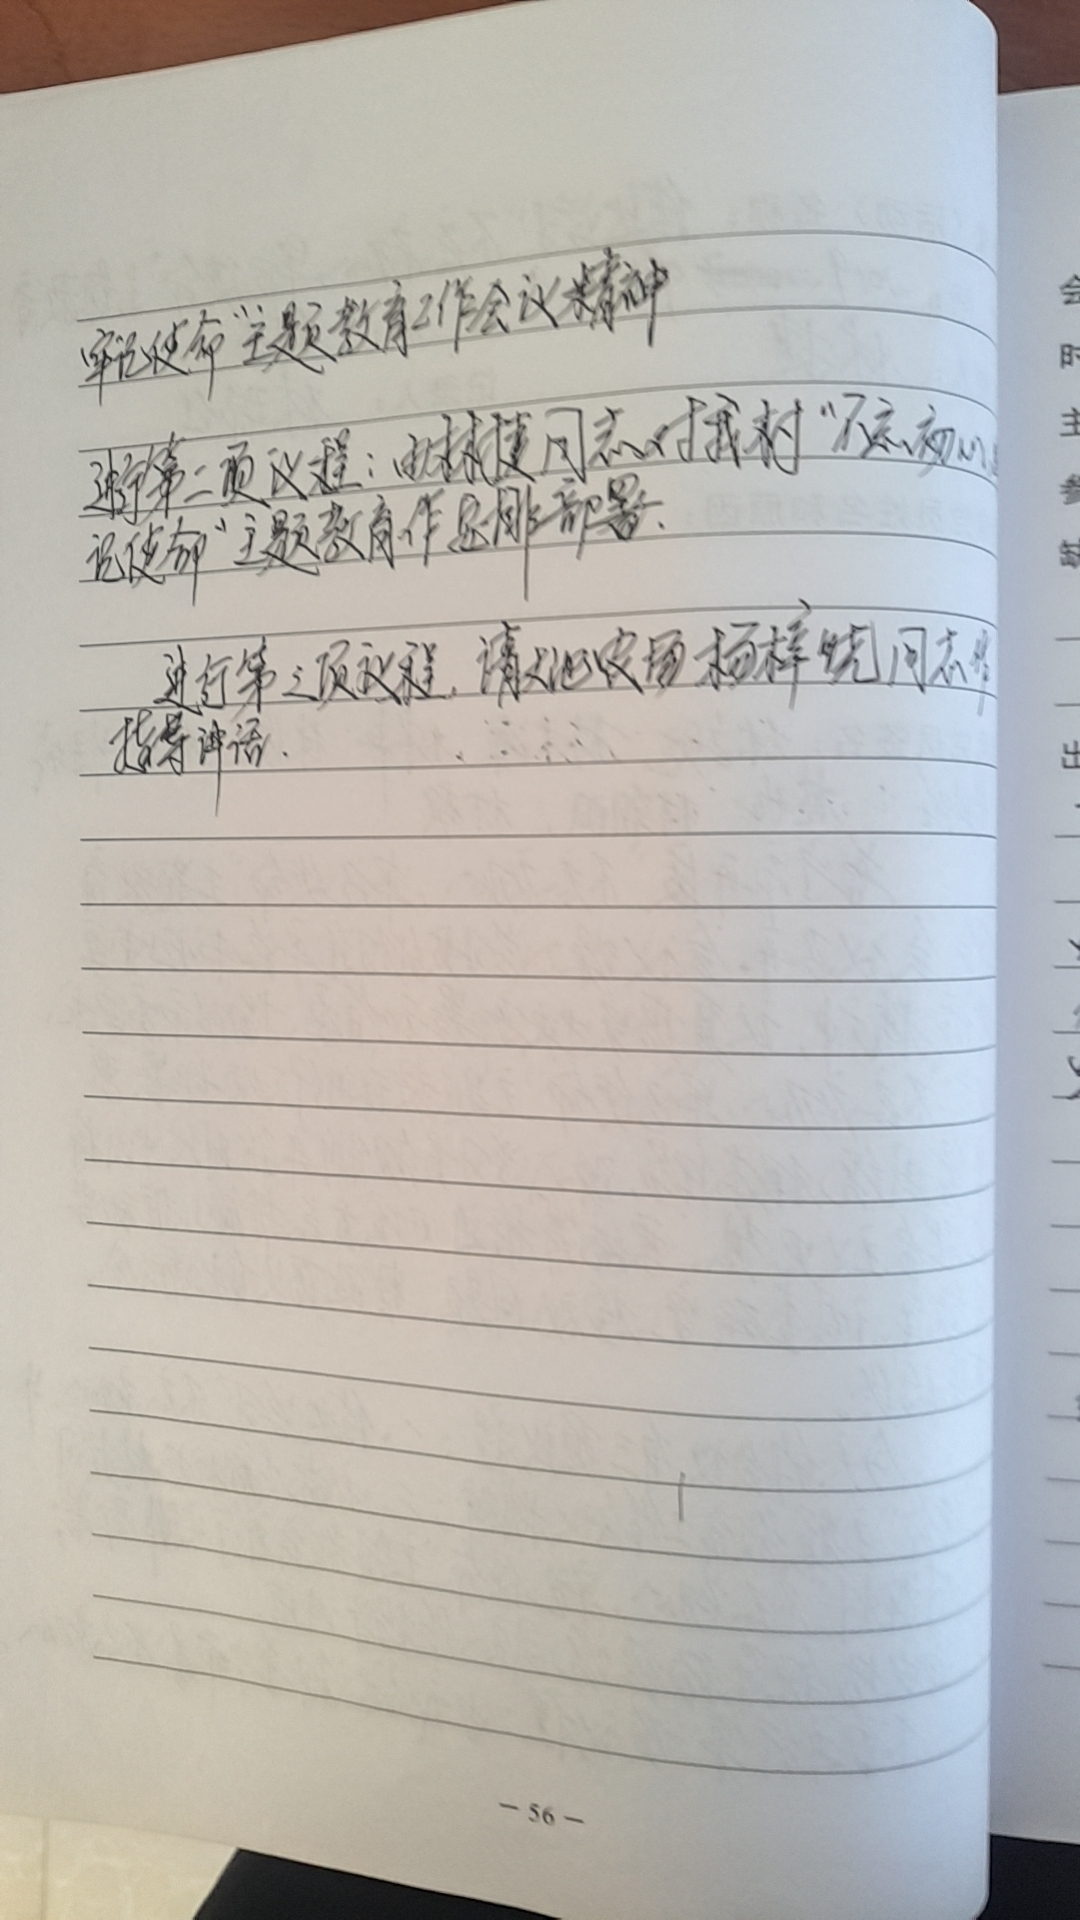 牢记使命"主题教育工作会议精神
进行第二项议程:由林捷同志对我村"不忘初心
记使命"主题教育作安排部署.
进行第三项议程,请大池农场杨梓锐同志作
指导讲话.
— 56 —
会
时
主
参
缺
出